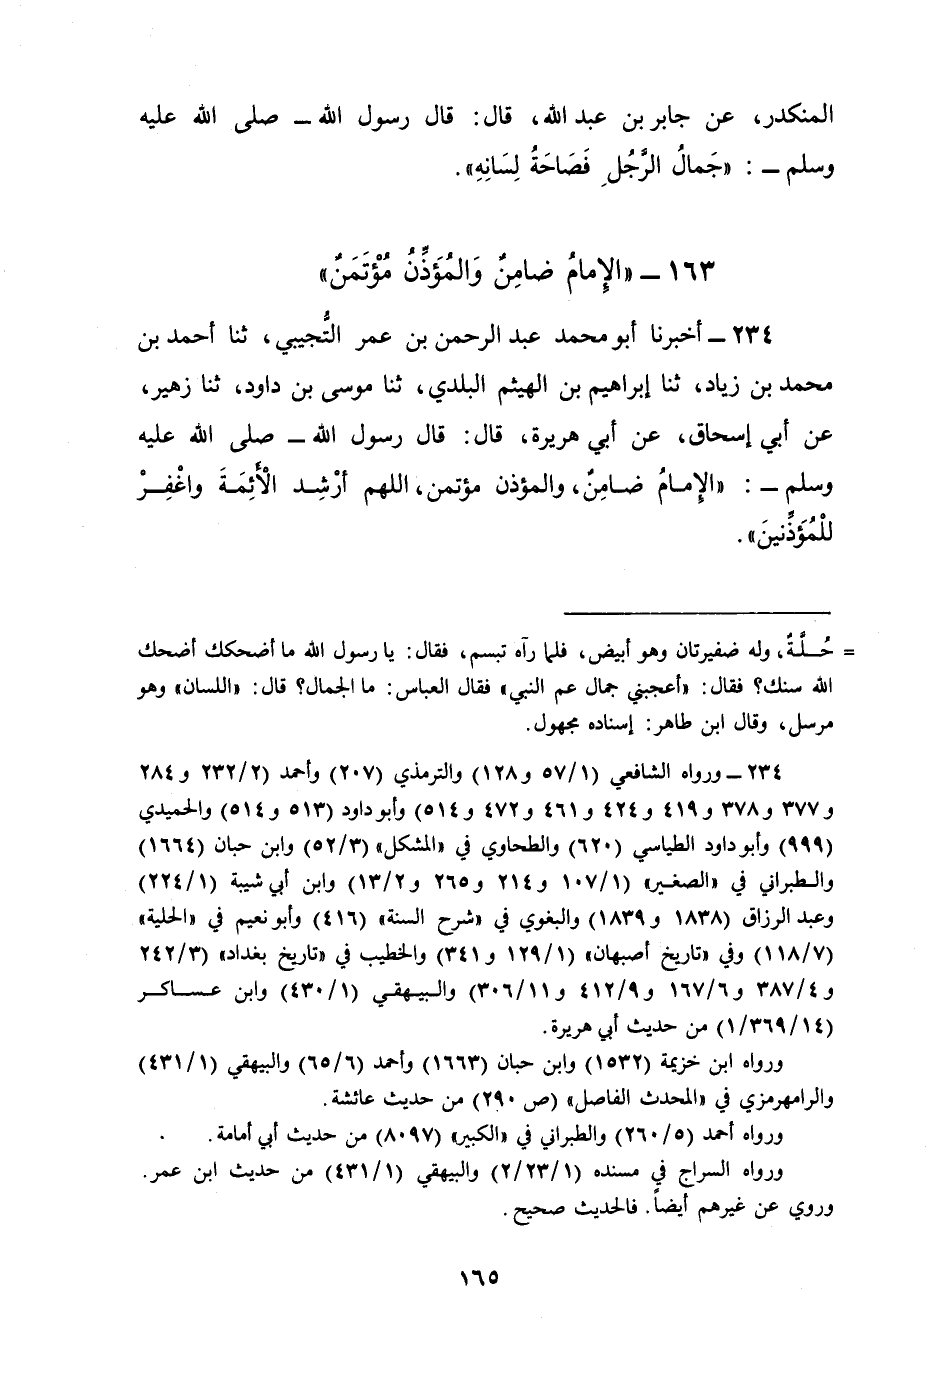 المنكدر، عن جابر بن عبد الله، قال: قال رسول الله ــ صلى الله عليه
وسلم ــ : «جَمالُ الرَّجُلِ فَصَاحَةُ لِسَانِهِ».
١٦٣ ــ «الإِمامُ ضامِنٌ وَالمُؤَذِّنُ مُؤْتَمَنٌ»
٢٣٤ ــ أخبرنا أبو محمد عبد الرحمن بن عمر التُّجيبي، ثنا أحمد بن
محمد بن زياد، ثنا إبراهيم بن الهيثم البلدي، ثنا موسى بن داود، ثنا زهير،
عن أبي إسحاق، عن أبي هريرة، قال: قال رسول الله ــ صلى الله عليه
وسلم ــ : «الإِمـامُ ضـامِنٌ، والمؤذن مؤتمن، اللهم أرْشِـد الْأَئِمَـةَ واغْفِـرْ
للْمُؤَذِّنينَ».
= حُـلَّـةٌ، وله ضفيرتان وهو أبيض، فلما رآه تبسم، فقال: يا رسول الله ما أضحكك أضحك
الله سنك؟ فقال: «أعجبني جمال عم النبي» فقال العباس: ما الجمال؟ قال: «اللسان» وهو
مرسل، وقال ابن طاهر: إسناده مجهول.
٢٣٤ ــ ورواه الشافعي (٥٧/١ و١٢٨) والترمذي (٢٠٧) وأحمد (٢٣٢/٢ و٢٨٤
و٣٧٧ و٣٧٨ و٤١٩ و٤٢٤ و٤٦١ و٤٧٢ و٥١٤) وأبو داود (٥١٣ و٥١٤) والحميدي
(٩٩٩) وأبو داود الطياسي (٦٢٠) والطحاوي في «المشكل» (٥٢/٣) وابن حبان (١٦٦٤)
والـطبراني في «الصغـير» (١٠٧/١ و٢١٤ و٢٦٥ و١٣/٢) وابن أبي شيبة (٢٢٤/١)
وعبد الرزاق (١٨٣٨ و١٨٣٩) والبغوي في «شرح السنة» (٤١٦) وأبو نعيم في «الحلية»
(١١٨/٧) وفي «تاريخ أصبهان» (١٢٩/١ و٣٤١) والخطيب في «تاريخ بغداد» (٢٤٢/٣
و٣٨٧/٤ و١٦٧/٦ و٤١٢/٩ و٣٠٦/١١) والـبيـهقـي (٤٣٠/١) وابن عـسـاكـر
(١/٣٦٩/١٤) من حديث أبي هريرة.
ورواه ابن خزيمة (١٥٣٢) وابن حبان (١٦٦٣) وأحمد (٦٥/٦) والبيهقي (٤٣١/١)
والرامهرمزي في «المحدث الفاصل» (ص ٢٩٠) من حديث عائشة.
ورواه أحمد (٢٦٠/٥) والطبراني في «الكبير» (٨٠٩٧) من حديث أبي أمامة.
ورواه السراج في مسنده (٢/٢٣/١) والبيهقي (٤٣١/١) من حديث ابن عمر.
وروي عن غيرهم أيضاً. فالحديث صحيح.
١٦٥